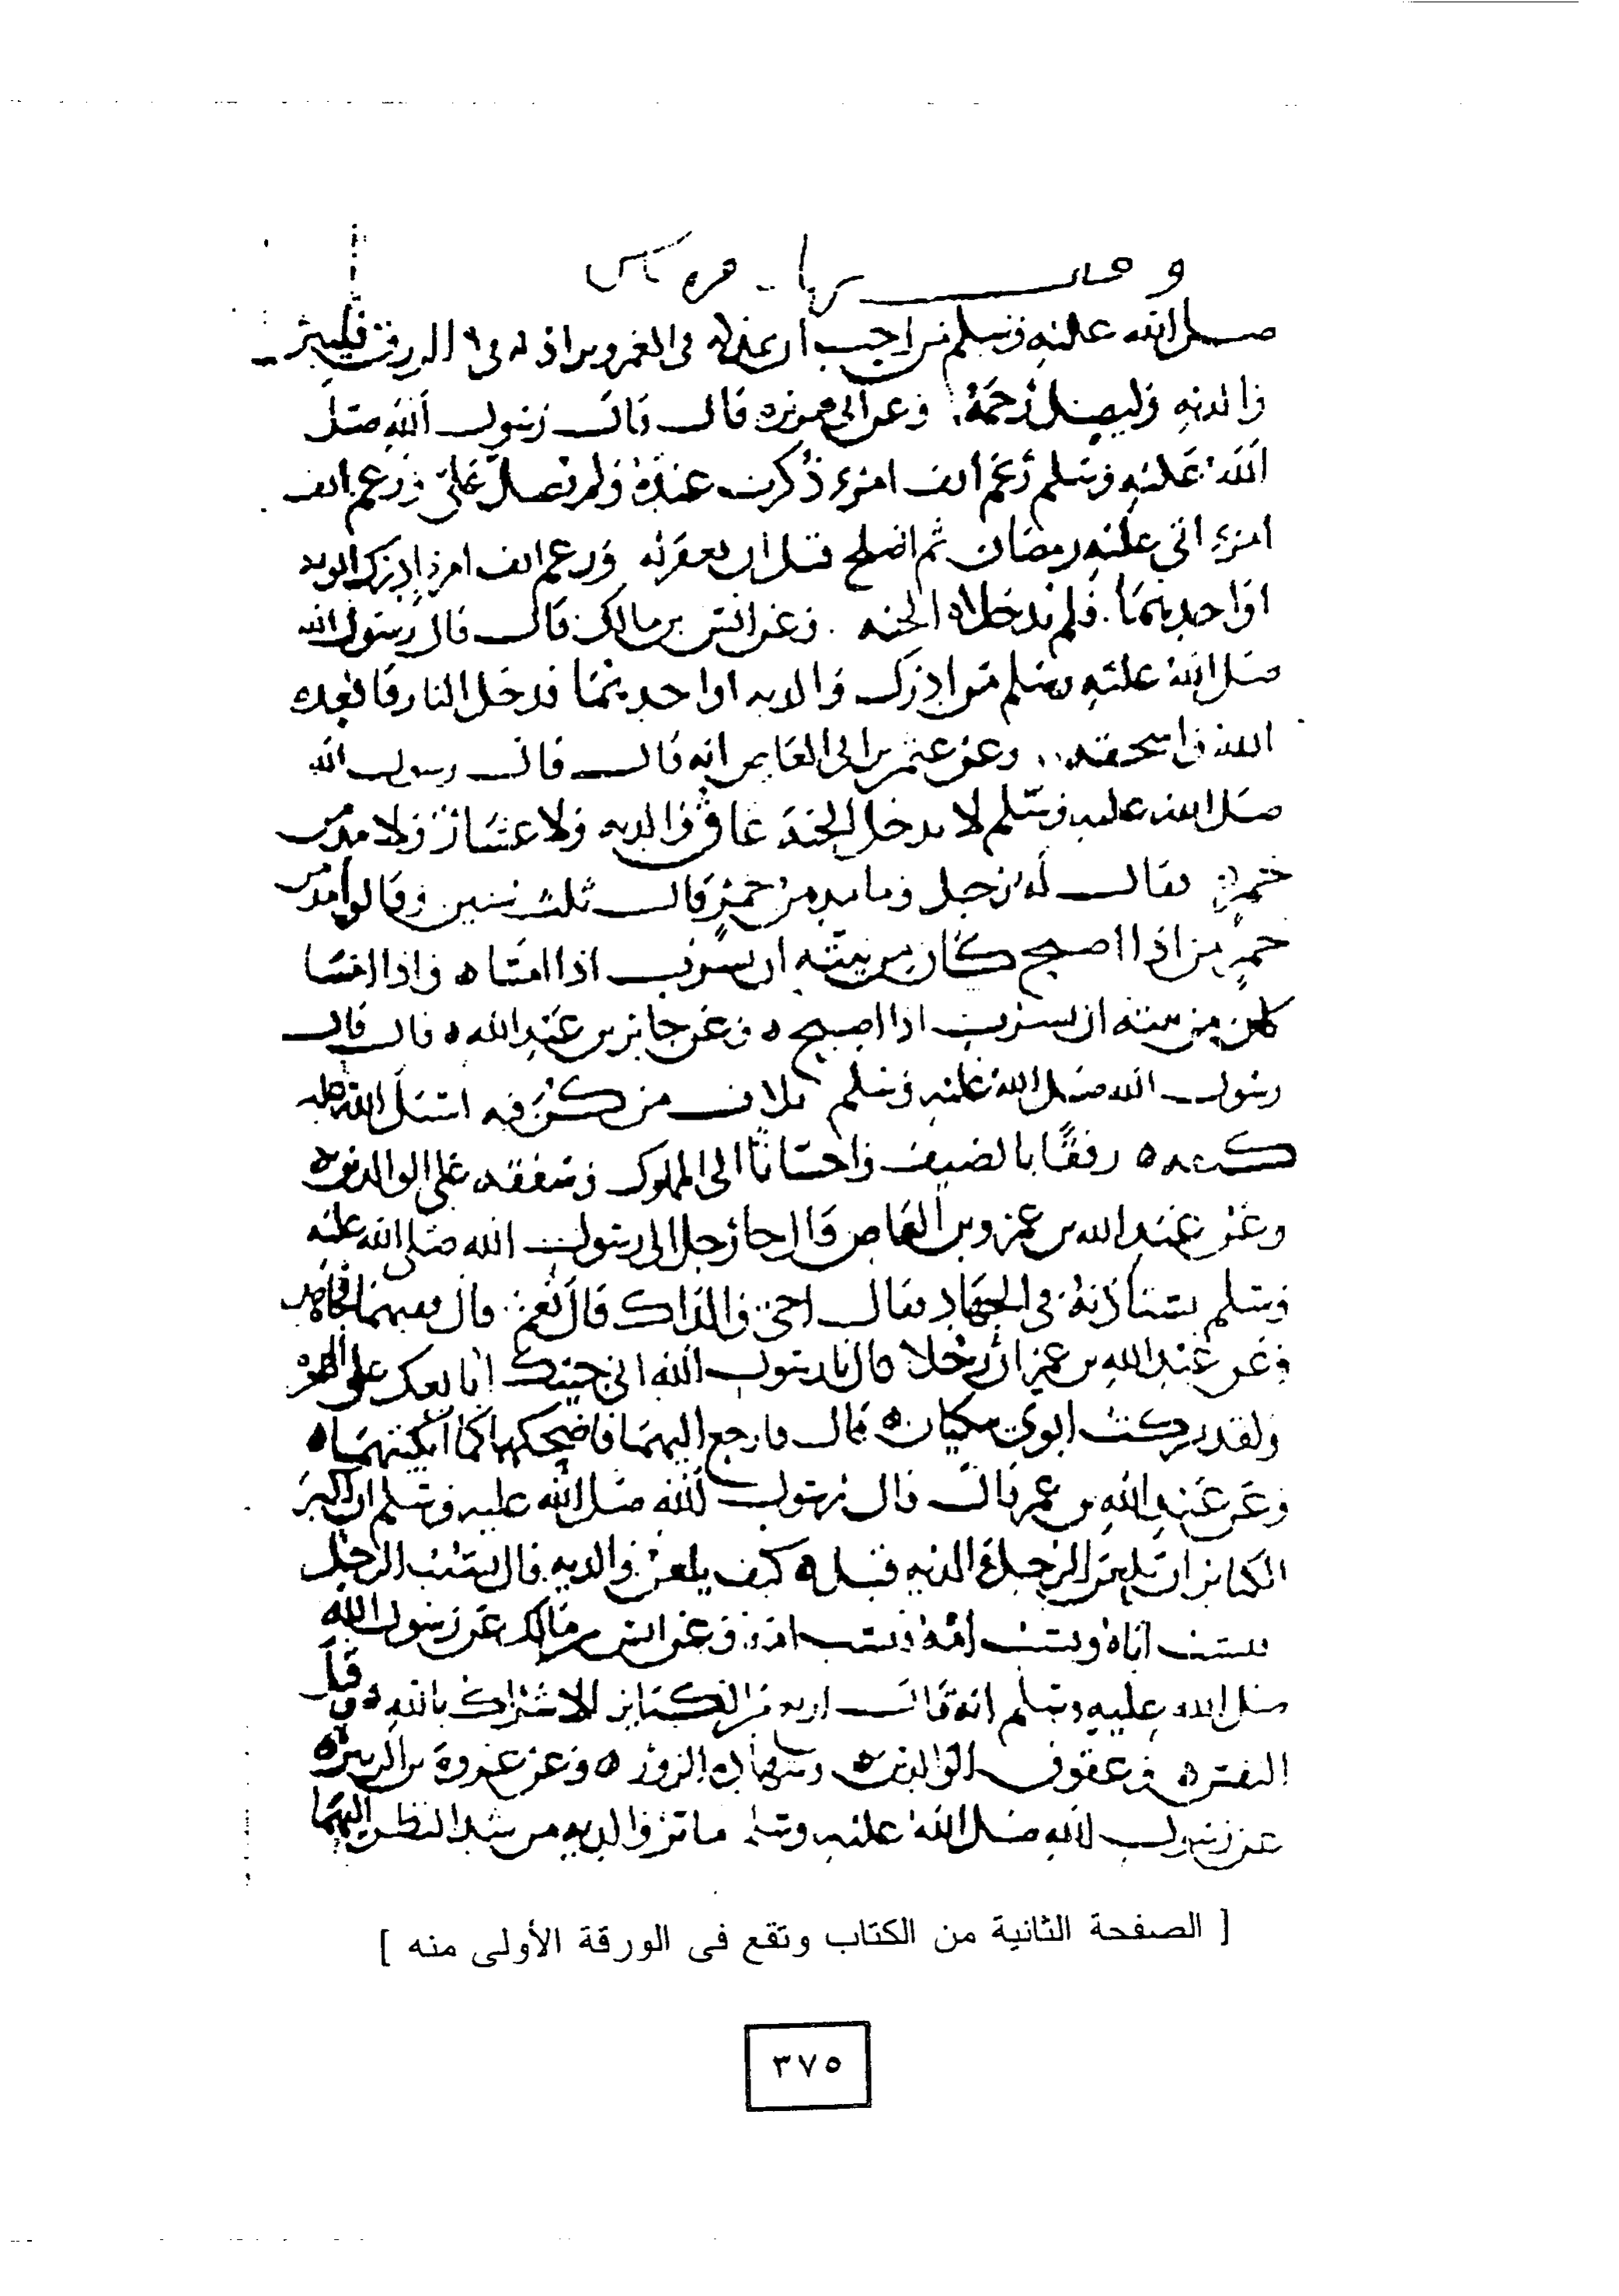 صلى الله عليه وسلم من احب ان يمد له في العمر ويزاد له في الرزق فليبر
والديه وليصل رحمه. وعن ابي هريرة قال قال رسول الله صلى
الله عليه وسلم رغم انف امرء ذكرت عنده ولم يصل علي ورغم انف
امرء اتى عليه رمضان ثم انسلخ قبل ان يغفر له ورغم انف امرء ادرك ابويه
او احديهما. فلم يدخلاه الجنه. وعن انس بن مالك قال قال رسول الله
صلى الله عليه وسلم من ادرك والديه او احديهما فدخل النار فابعده
الله واسحقه. وعن عثمن بن ابي العاص انه قال قال رسول الله
صلى الله عليه وسلم لا يدخل الجنة عاق والديه ولا عشار ولا مدمن
خمر فقال له رجل وما مدمن خمر قال ثلث سنين وقالوا مدمن
خمر من اذا اصبح كان من نيته ان يشرب اذا امسا ه واذا امسا
كان من نيته ان يشرب اذا اصبح ه وعن جابر بن عبد الله ه قال قال
رسول الله صلى الله عليه وسلم ثلاث من كن فيه اسبل الله عليه
كنفه ه رفقا بالضيف واحسانا الى المملوك وشفقه على الوالدين ه
وعن عبد الله بن عمرو بن العاص قال جا رجل الى رسول الله صلى الله عليه
وسلم يستاذنه في الجهاد فقال احي والداك قال نعم قال ففيهما فجاهد
وعن عبد الله بن عمر ان رجلا قال يا رسول الله اني جيتك ابايعك على الهجره
ولقد تركت ابوي يبكيان ه قال فارجع اليهما فاضحكهما كما ابكيتهما ه
وعن عبد الله بن عمر قال قال رسول الله صلى الله عليه وسلم ان اكبر
الكبائر ان يلعن الرجل والديه قيل ه كيف يلعن والديه قال يسب الرجل
فيسب اباه ويسب امه فيسب امه. وعن انس بن مالك عن رسول الله
صلى الله عليه وسلم انه قال اربع من الكبائر الاشراك بالله ه وقتل
النفس ه وعقوق الوالدين ه وشهادة الزور ه وعن عروة بن الزبير ه
عن رسول الله صلى الله عليه وسلم ما بر والديه من شد النظر اليهما
[ الصفحة الثانية من الكتاب وتقع فى الورقة الأولى منه ]
٣٧٥